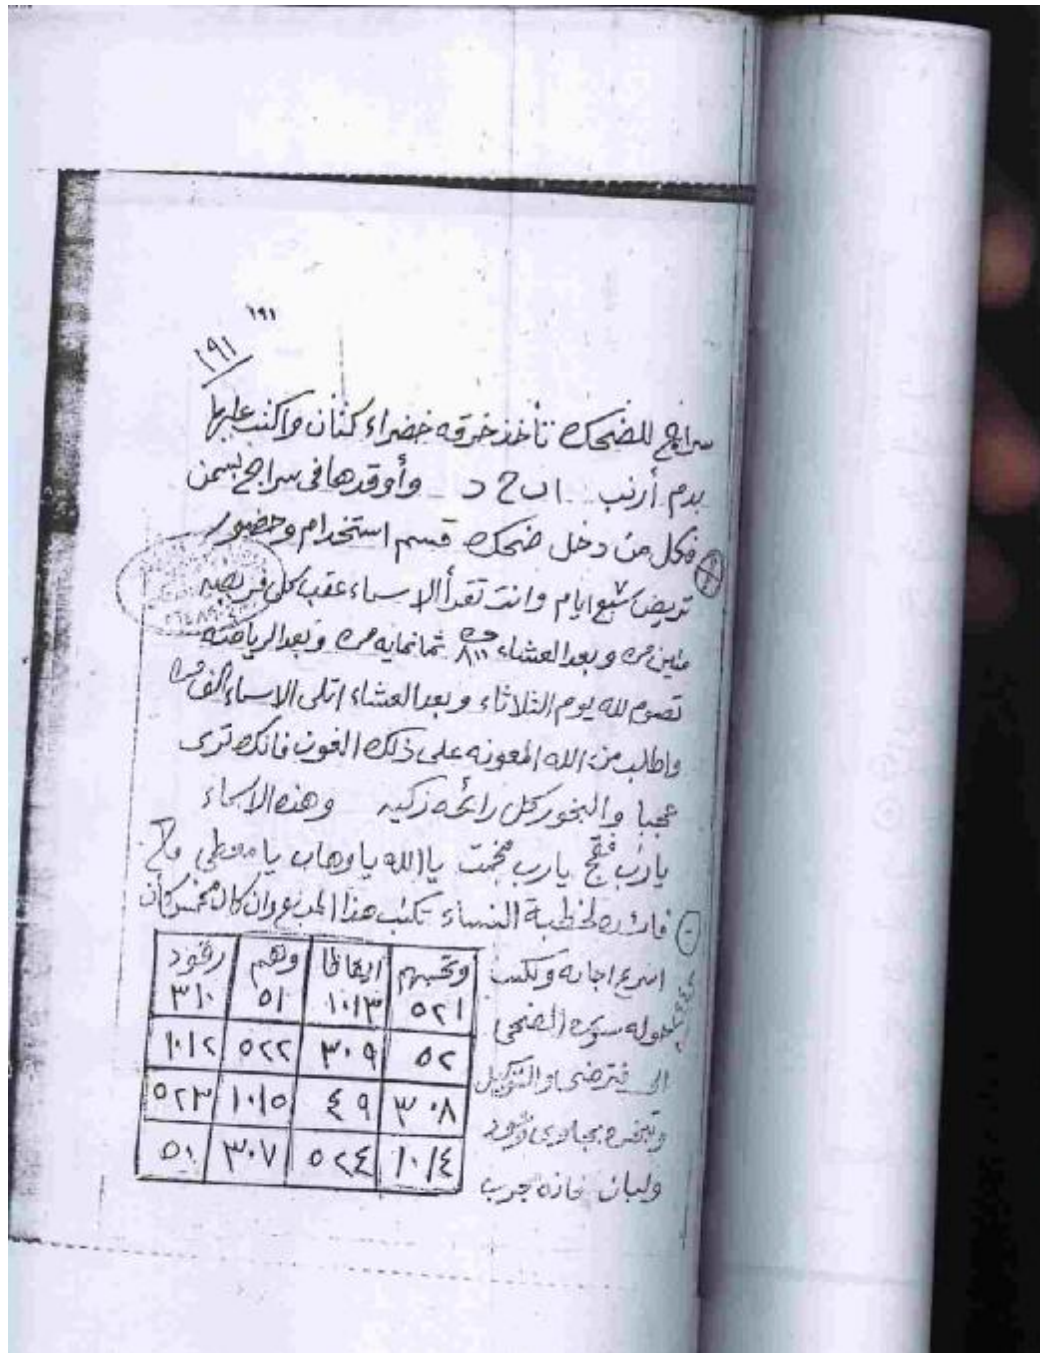 ١٩١
١٩١
سراج للضحك تأخذ خرقه خضراء كتان واكتب عليها
بدم أرنب ا ب ح د وأوقدها فى سراج بسمن
فكل من دخل ضحك قسم استخدام وحضور
تريض سبع ايام وانت تقرأ الاسماء عقب كل فريضه
مئين مره وبعد العشاء ٨٠٠ مره ثمانمايه مره وبعد الرياضه
تصوم لله يوم الثلاثاء وبعد العشاء اتلى الاسماء الف مره
واطلب من الله المعونه على ذلك العون فانك ترى
عجبا والبخور كل رائحه زكيه وهذه الاسماء
يارب يارب يا الله يا وهاب يا معطى
فائده لخطبة النساء تكتب هذا المربع وان كان مخمس كان
اسرع اجابه وتكتب
حوله سورة الضحى
الى فترضى والتوكيل
وتبخره بجاوى
ولبان فانه مجرب
وتحسبهم ايقاظا وهم رقود
٥٢١ ١٠١٣ ٥١ ٣١٠
٥٢ ٣٠٩ ٥٢٢ ١٠١٢
٣٠٨ ٤٩ ١٠١٥ ٥٢٣
١٠١٤ ٥٢٤ ٣٠٧ ٥٠